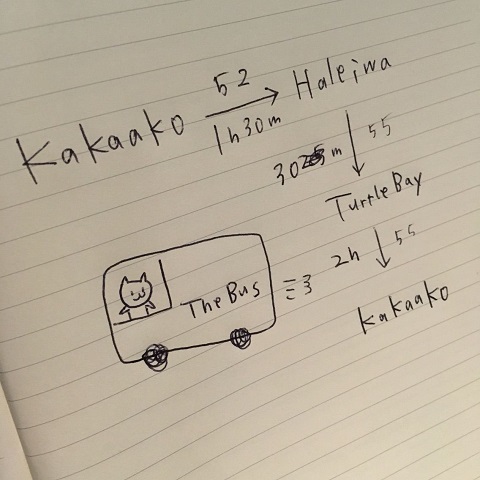 52
Kakaako → Haleiwa
1h30m
30 m ↓ 55
Turtle Bay
2h ↓ 55
kakaako
The Bus